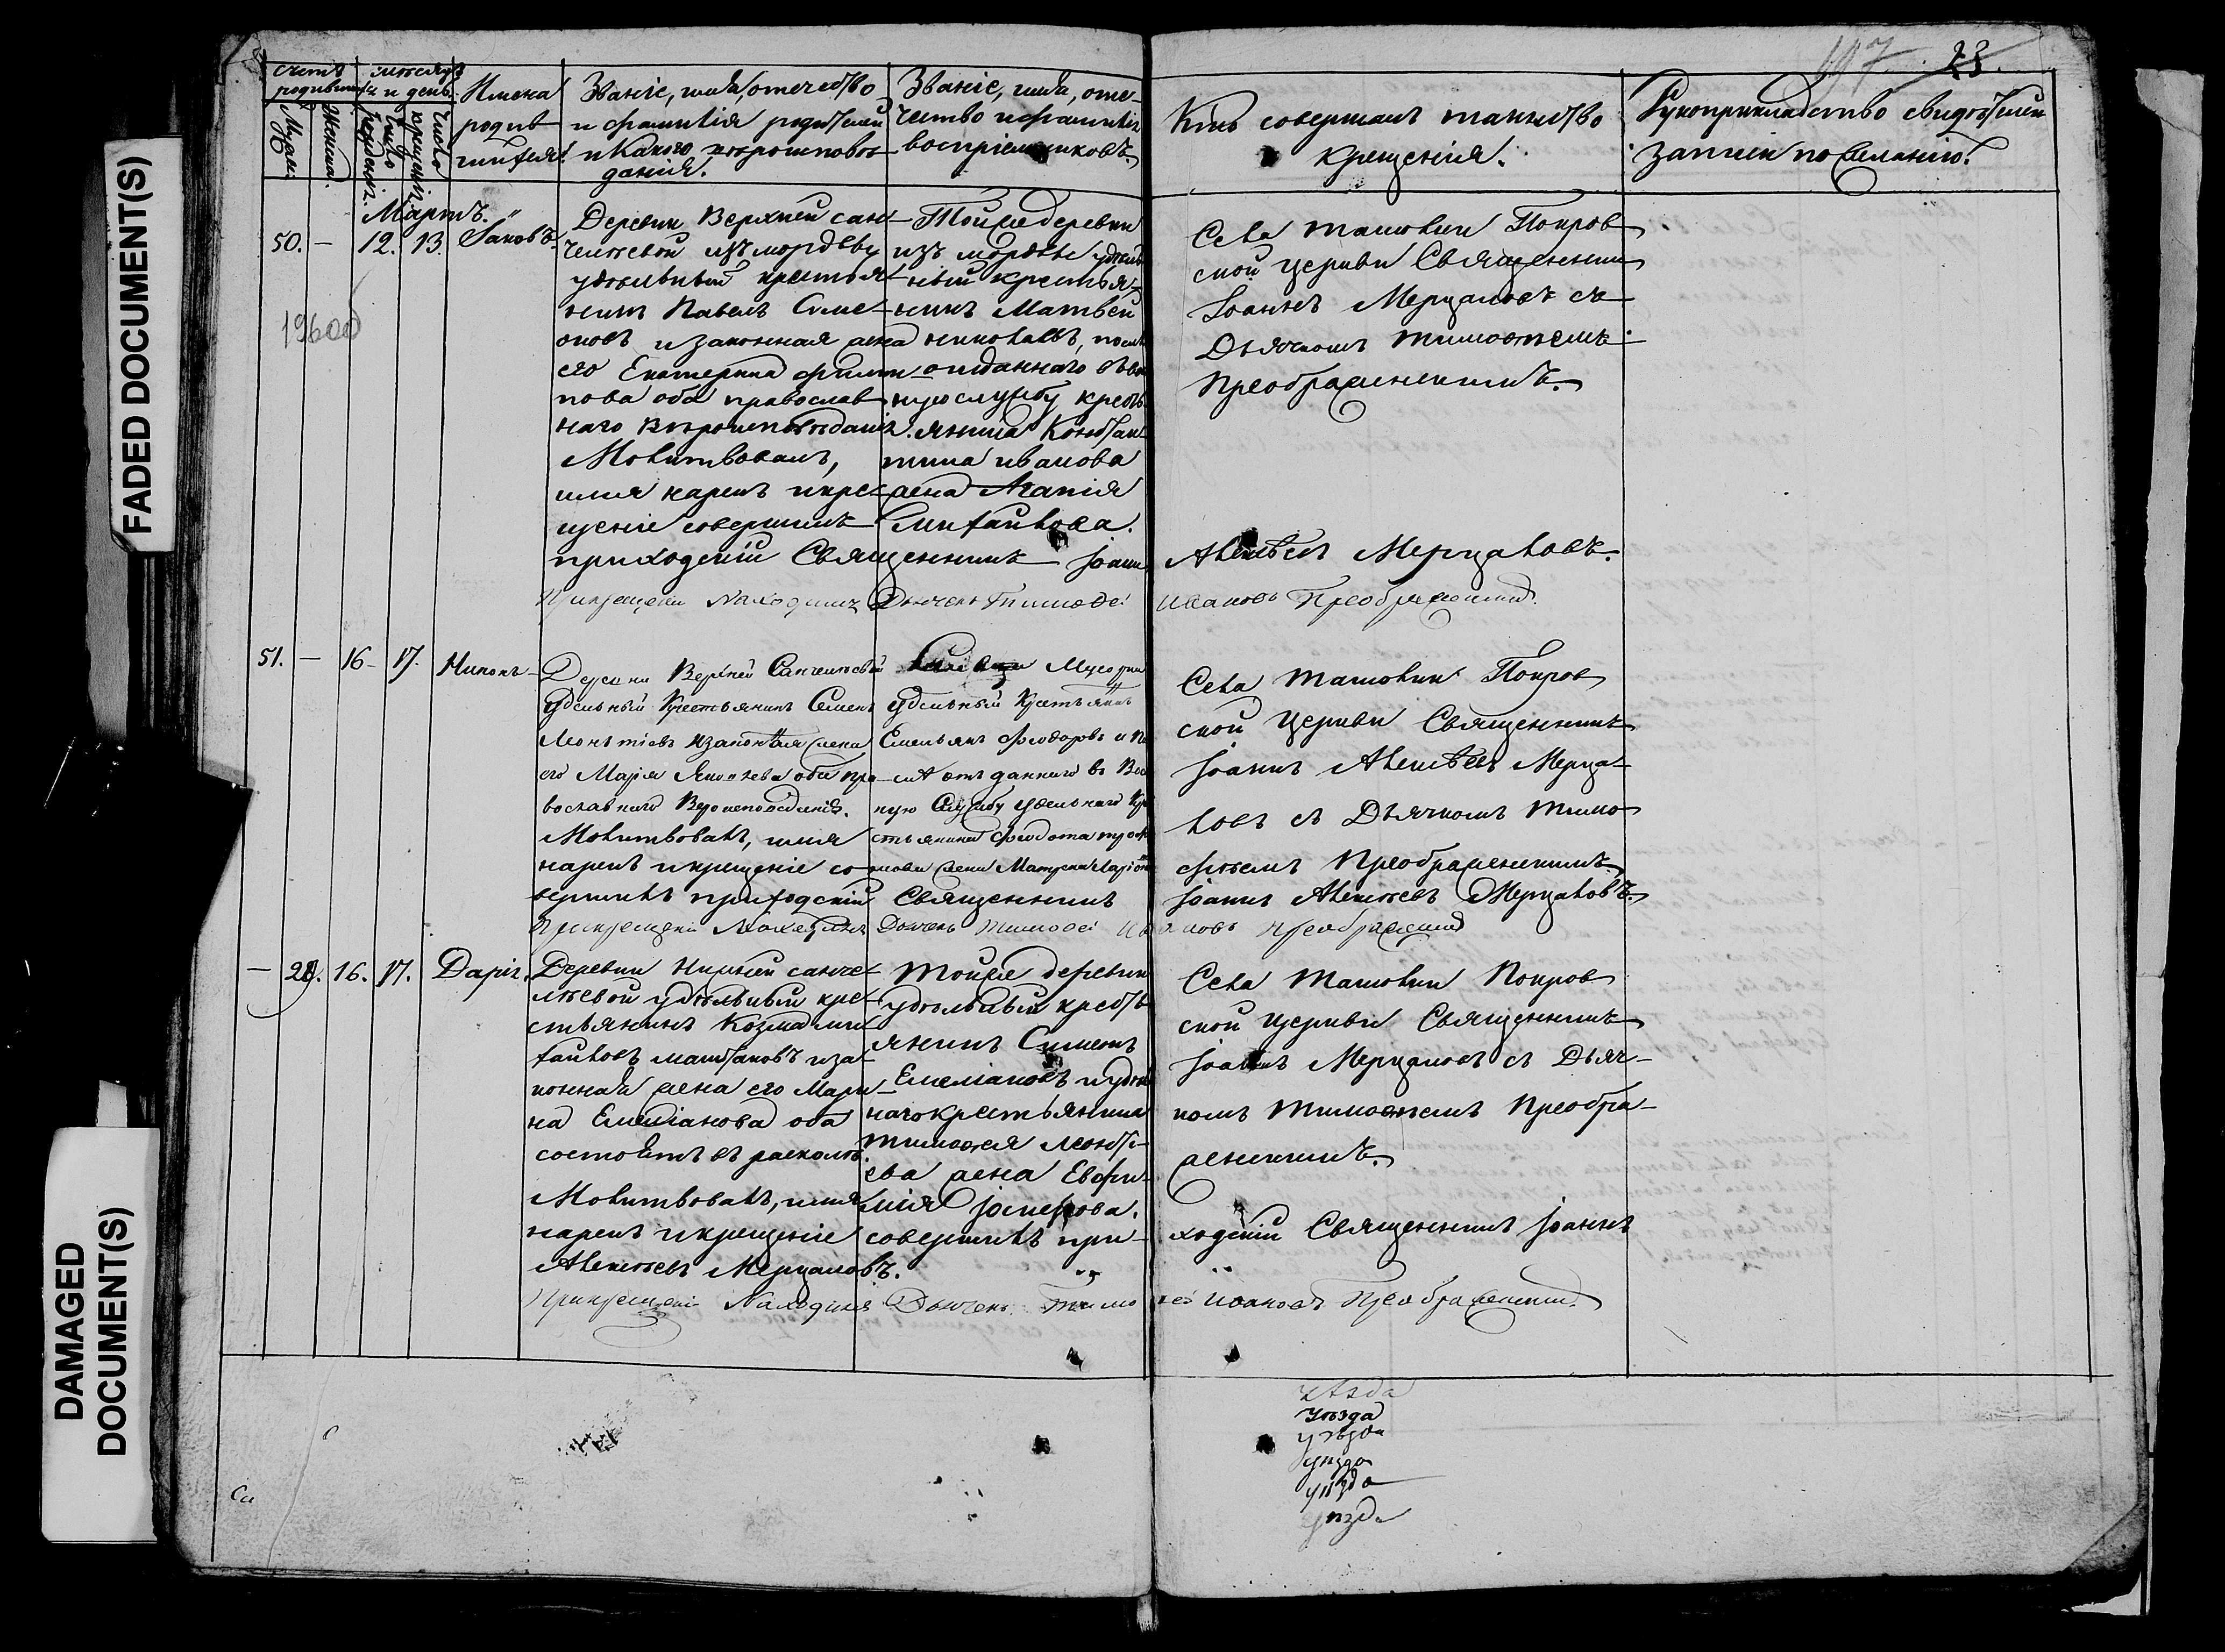 FADED DOCUMENT(S)
DAMAGED
DOCUMENT(S)
23.
счетъ
родившихъ
мѣсяцъ
и день.
Мужес.
Женска.
Число рожденія.
Число крещенія.
Имена
родив
шихся.
Званіе, имя, отечество
и фамилія родителей
и какого вѣроисповѣ
данія.
Званіе, имя, оте-
чество и фамилія
воспріемниковъ.
Кто совершалъ таинство
крещенія.
Рукоприкладство свидѣтелей
записи по желанію.
Мартъ.
50. — 12. 13. Іаковъ.
19600
Деревни Верхней сан
челѣевой изъ мордвы
удѣльный крестья
нинъ Павелъ Симе-
оновъ и законная жена
его Екатерина Филип
пова оба православ
наго вѣроисповѣданія.
Молитвовалъ,
имя нарекъ и кре-
щеніе совершилъ
приходскій Священникъ Іоаннъ Алексѣевъ Мерцаловъ.
При крещеніи находился Дьячекъ Тимофей Ивановъ Преображенскій.
Той же деревни
изъ мордвы удѣль
ный крестья-
нинъ Матвей
отданнаго въ во
ную службу кресть
янина Констан
тина иванова
жена
Михайлова.
Села Ташовки Покров
ской церкви Священникъ
Іоаннъ Мерцаловъ съ
Дьячкомъ Тимофѣемъ
Преображенскимъ.
51. — 16 17. Никонъ
Деревни Верхней Санчелѣевой
Удельный Крестьянинъ Семенъ
Леонтіевъ и законная жена
его Марія Яковлева оба пра-
вославнаго Вероисповеданія.
Молитвовалъ, имя
нарекъ и крещеніе со
вершилъ приходскій Священникъ Іоаннъ Алексѣевъ Мерцаловъ.
При крещеніи Находился Дьячекъ Тимофей Ивановъ Преображенскій
удельный Крестьянинъ
Емельянъ Феодоровъ и По
слѣ отъданнаго въ Вое
ную Службу удельнаго Кре
стьянина Феодота
Села Ташовки Покров
ской Церкви Священникъ
Іоаннъ Алексѣевъ Мерца-
ловъ съ Дьячкомъ Тимо
фѣемъ Преображенскимъ.
— 29. 16. 17. Дарія.
Деревни Нижней санче
лѣевой удѣльный кре
стьянинъ Козма ми
хайловъ и за
конная жена его Мари
на Емеліанова оба
состоятъ въ расколѣ.
Молитвовалъ, имя
нарекъ и крещеніе совершилъ при- ходскій Священникъ Іоаннъ
Алексѣевъ Мерцаловъ.
При крещеніи Находился Дьячекъ Тимофей Ивановъ Преображенскій.
Той же деревни
удѣльный кресть
янинъ Симеонъ
Емеліановъ и удѣль
наго крестьянина
Тимофея Леонті-
ева жена Евфи-
мія Іосифова.
Села Ташовки Покров
ской Церкви Священникъ
Іоаннъ Мерцаловъ съ Дьяч-
комъ Тимофѣемъ Преобра-
женскимъ.
уѣзда
уѣзда
уѣзда
уѣзда
уѣзда
уѣзда